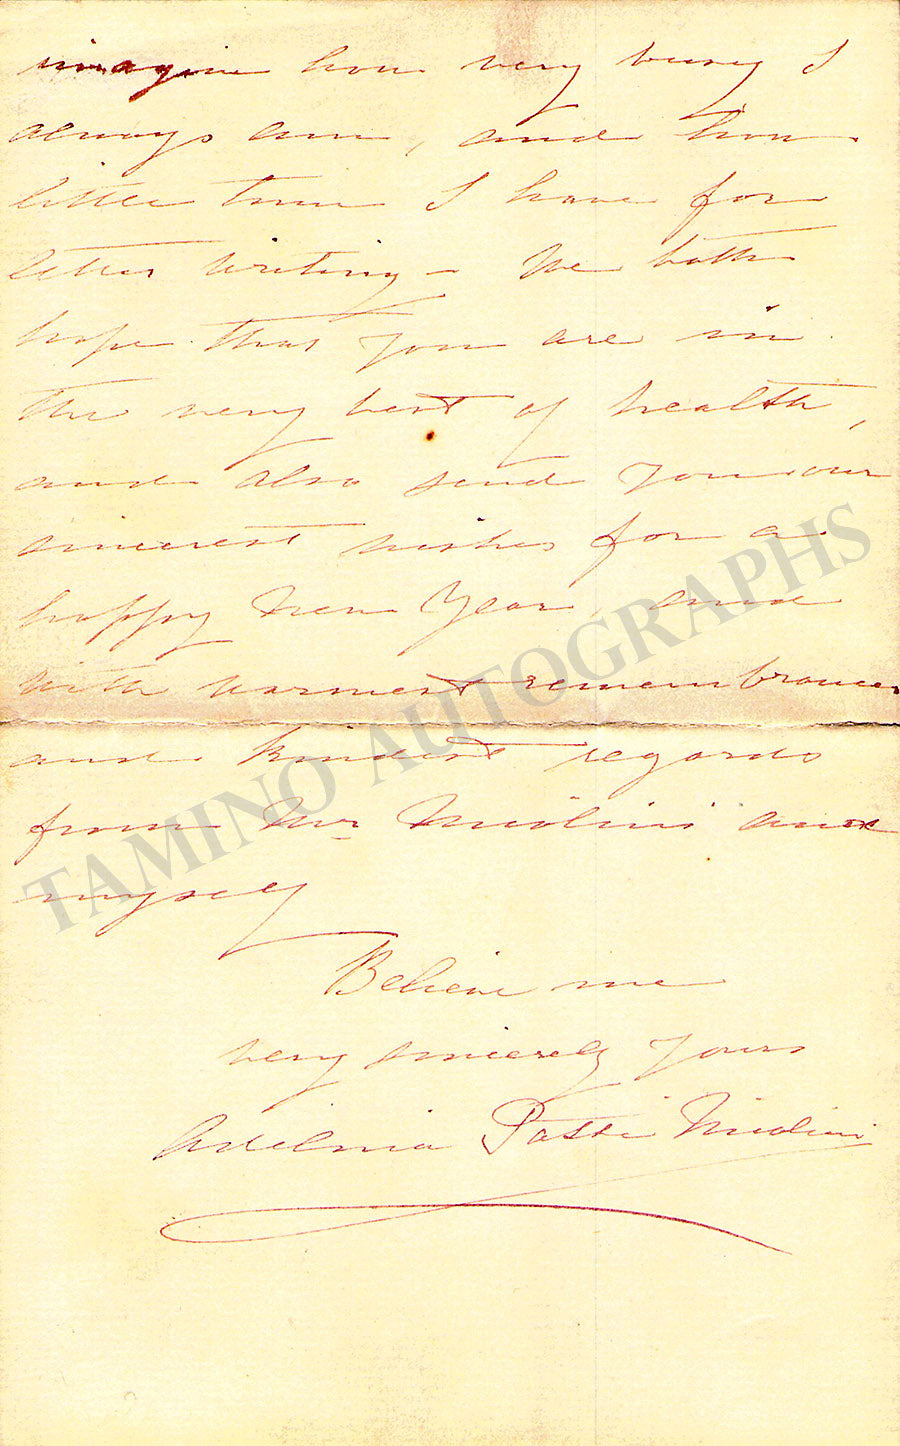 imagine how very busy I
always am, and how
little time I have for
letter writing – We both
hope that you are in
the very best of health,
and also send you our
sincerest wishes for a
happy New Year, and
with warmest remembrances
and kindest regards
from Mr Nicolini and
myself
Believe me
very sincerely yours
Adelina Patti Nicolini
TAMINO AUTOGRAPHS